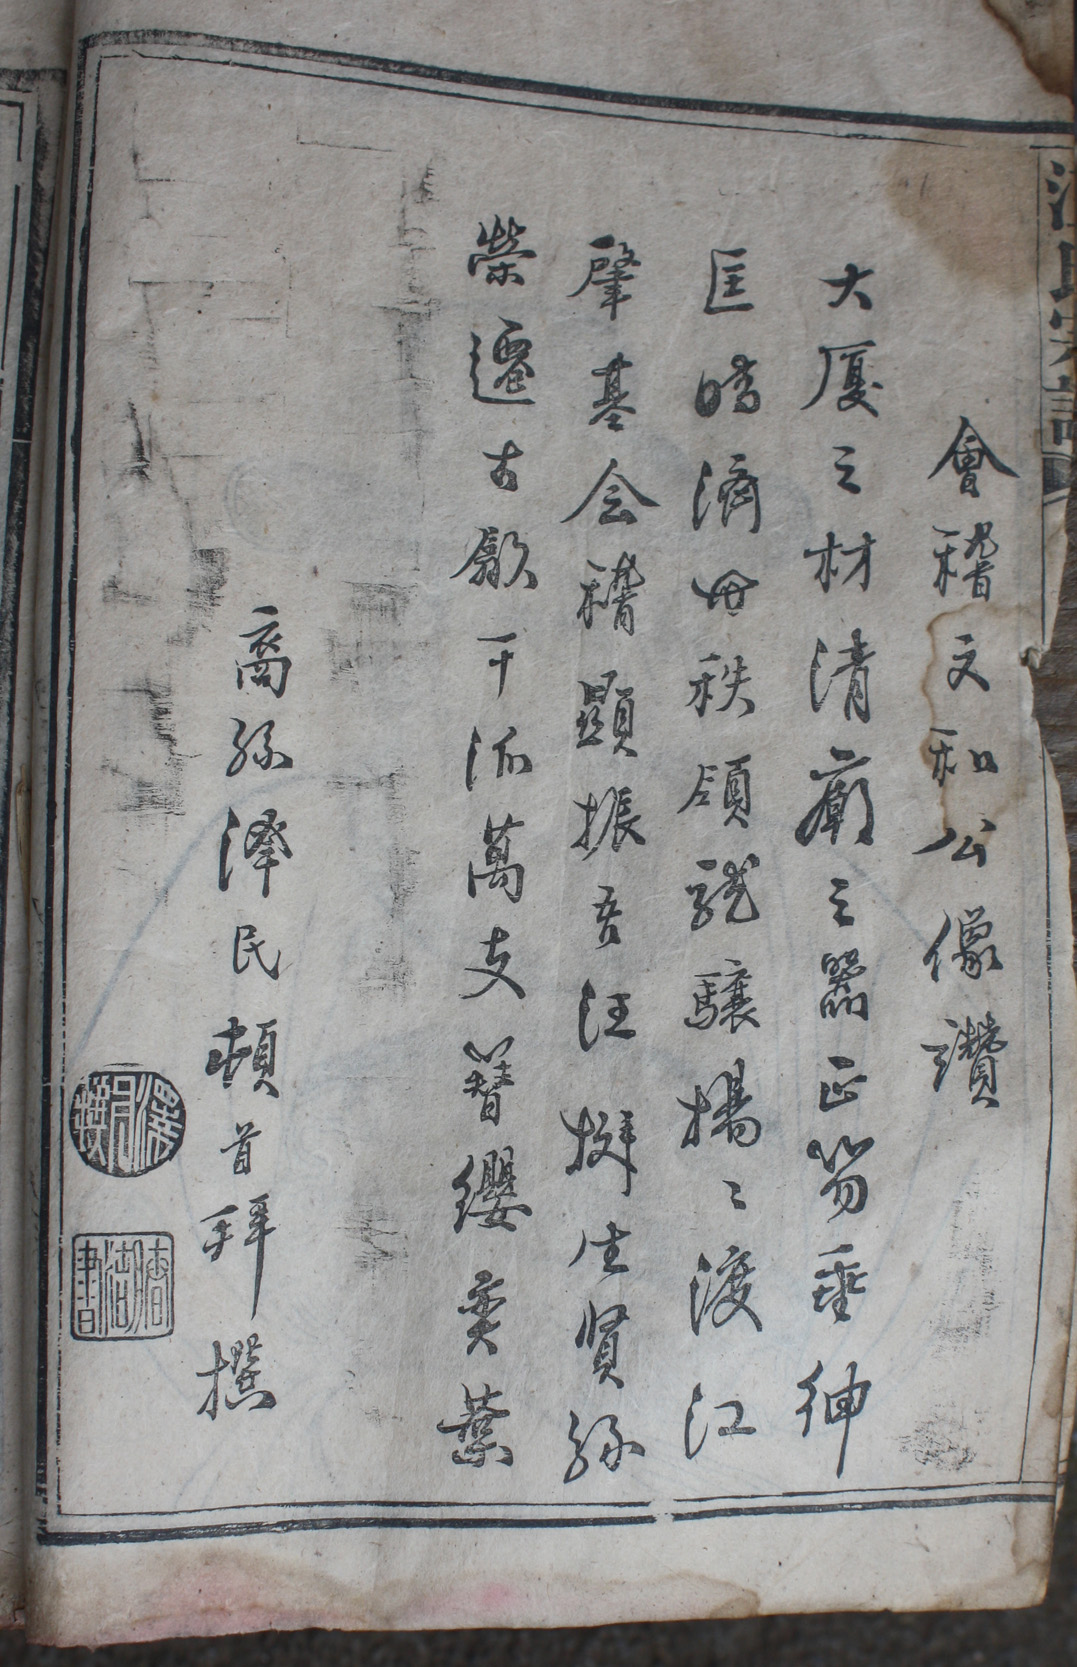 汪氏宗譜
會稽文和公像讚
大厦之材清廟之器正笏垂紳
匡時濟世秩領龍驤揚〻渡江
肇基会稽顯振吾汪挺生賢孫
榮遷古歙千派萬支簪纓奕葉
裔孫澤民頓首拜撰
澤民撰
書